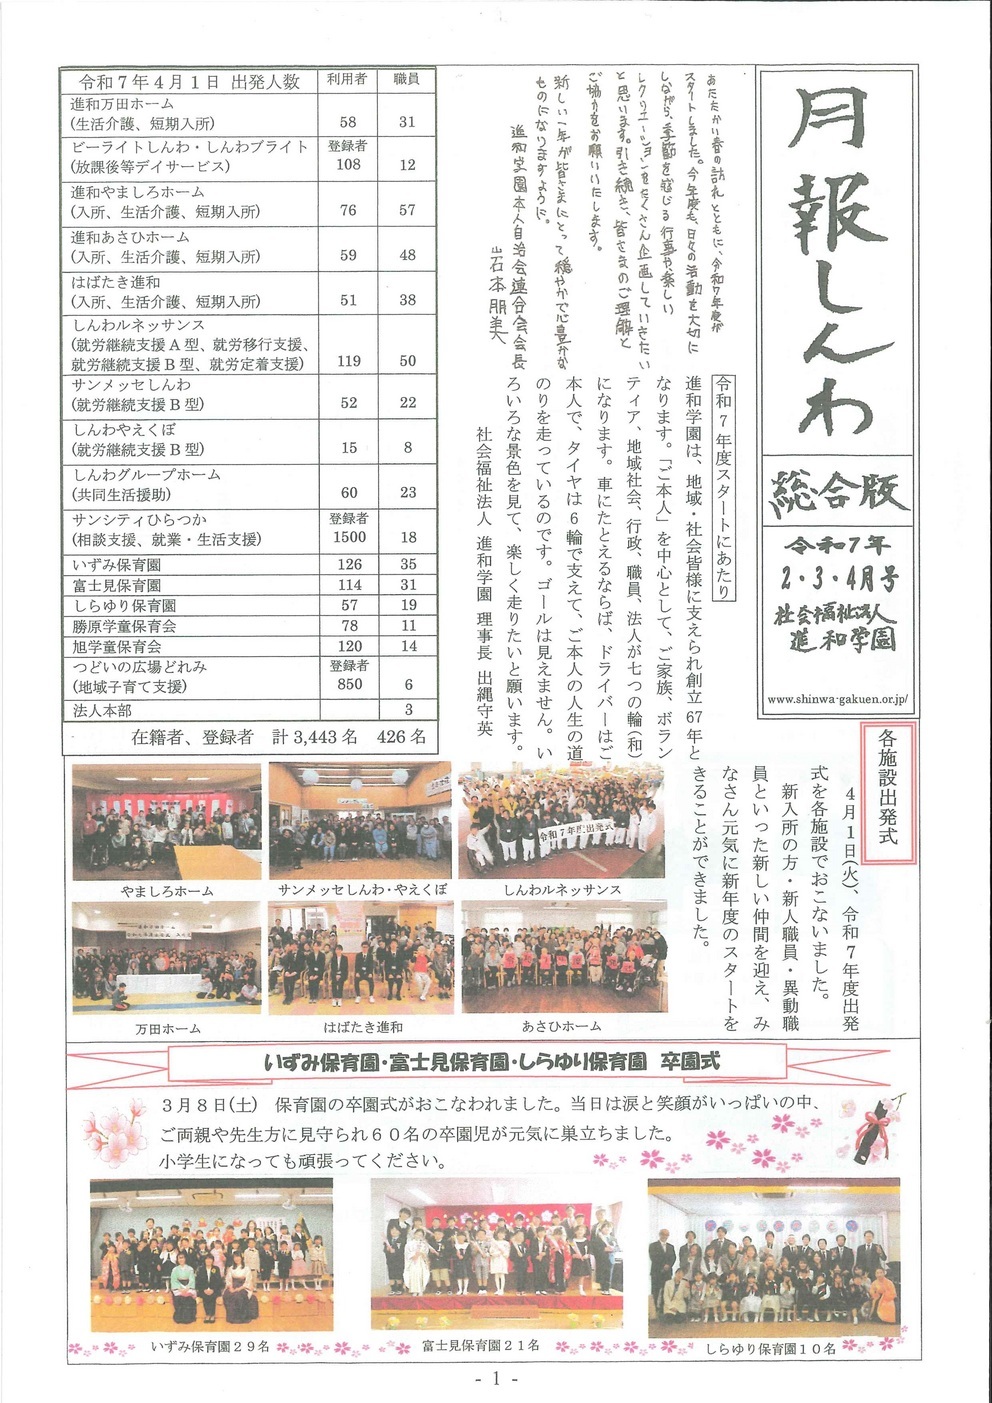 月報しんわ
総合版
令和7年
2・3・4月号
社会福祉法人
進和学園
www.shinwa-gakuen.or.jp/
あたたかい春の訪れとともに、令和7年度が
スタートしました。今年度も、日々の活動を大切に
しながら、季節を感じる行事や楽しい
レクリエーションをたくさん企画していきたい
と思います。引き続き、皆さまのご理解と
ご協力をお願いいたします。
新しい一年が皆さまにとって穏やかで心豊かな
ものになりますように。
進和学園本人自治会連合会会長
岩本朋美
令和7年度スタートにあたり
進和学園は、地域・社会皆様に支えられ創立67年と
なります。「ご本人」を中心として、ご家族、ボラン
ティア、地域社会、行政、職員、法人が七つの輪(和)
になります。車にたとえるならば、ドライバーはご
本人で、タイヤは6輪で支えて、ご本人の人生の道
のりを走っているのです。ゴールは見えません。い
ろいろな景色を見て、楽しく走りたいと願います。
社会福祉法人 進和学園 理事長 出縄守英
令和7年4月1日 出発人数 利用者 職員
進和万田ホーム
(生活介護、短期入所) 58 31
ビーライトしんわ・しんわブライト 登録者
(放課後等デイサービス) 108 12
進和やましろホーム
(入所、生活介護、短期入所) 76 57
進和あさひホーム
(入所、生活介護、短期入所) 59 48
はばたき進和
(入所、生活介護、短期入所) 51 38
しんわルネッサンス
(就労継続支援A型、就労移行支援、
就労継続支援B型、就労定着支援) 119 50
サンメッセしんわ
(就労継続支援B型) 52 22
しんわやえくぼ
(就労継続支援B型) 15 8
しんわグループホーム
(共同生活援助) 60 23
サンシティひらつか 登録者
(相談支援、就業・生活支援) 1500 18
いずみ保育園 126 35
富士見保育園 114 31
しらゆり保育園 57 19
勝原学童保育会 78 11
旭学童保育会 120 14
つどいの広場どれみ 登録者
(地域子育て支援) 850 6
法人本部 3
在籍者、登録者 計3,443名 426名
各施設出発式
4月1日(火)、令和7年度出発
式を各施設でおこないました。
新入所の方・新人職員・異動職
員といった新しい仲間を迎え、み
なさん元気に新年度のスタートを
きることができました。
令和7年度出発式
やましろホーム
サンメッセしんわ・やえくぼ
しんわルネッサンス
万田ホーム
はばたき進和
あさひホーム
いずみ保育園・富士見保育園・しらゆり保育園 卒園式
3月8日(土) 保育園の卒園式がおこなわれました。当日は涙と笑顔がいっぱいの中、
ご両親や先生方に見守られ60名の卒園児が元気に巣立ちました。
小学生になっても頑張ってください。
いずみ保育園29名
富士見保育園21名
しらゆり保育園10名
- 1 -